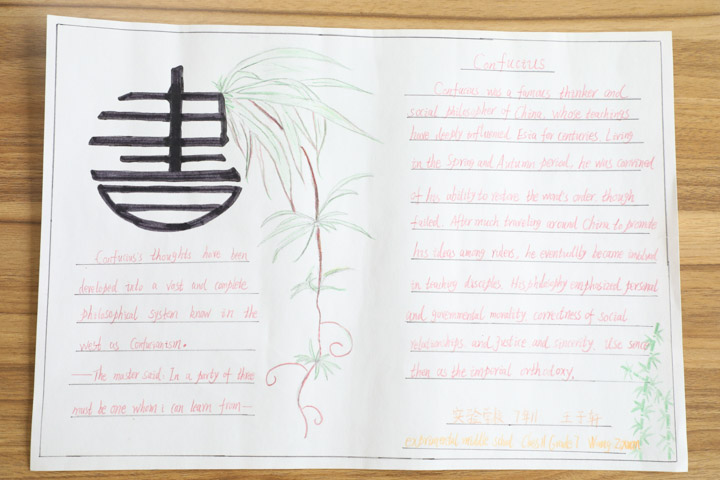 書
Confucius's thoughts have been
developed into a vast and complete
philosophical system know in the
west as Confucianism.
—The master said. In a party of three
must be one whom i can learn from—
Confucius
Confucius was a famous thinker and
social philosopher of China, whose teachings
have deeply influenced Esia for centuries. Living
in the Spring and Autumn period, he was convinced
of his ability to restore the world's order, though
failed. After much traveling around China to promote
his ideas among rulers, he eventually became involved
in teaching disciples. His philosophy emphasized personal
and governmental morality, correctness of social
relationships, and justice and sincerity. Use since
then as the imperial orthodoxy.
实验学校 7年1 王子轩
experimental middle Class1 Grade7 Wang Zixuan